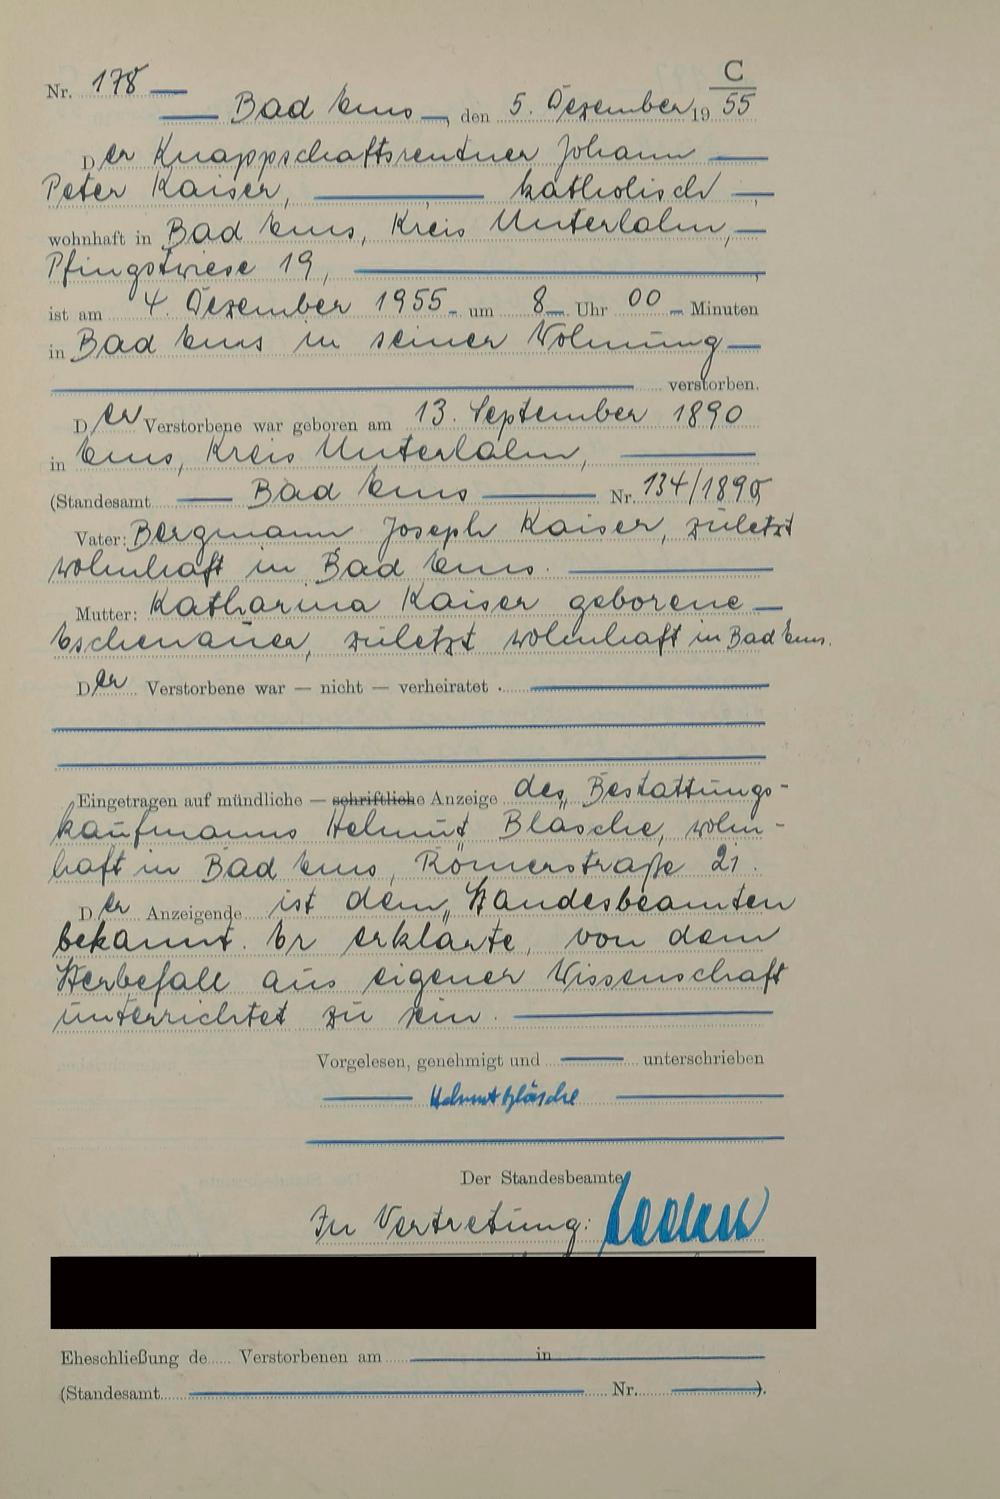 C
Nr. 178
Bad Ems, den 5. Dezember 19 55
Der Knappschaftsrentner Johann
Peter Kaiser, katholisch,
wohnhaft in Bad Ems, Kreis Unterlahn,
Pfingstwiese 19,
ist am 4. Dezember 1955 um 8 Uhr 00 Minuten
in Bad Ems in seiner Wohnung
verstorben.
Der Verstorbene war geboren am 13. September 1890
in Ems, Kreis Unterlahn,
(Standesamt Bad Ems Nr. 134/1890
Vater: Bergmann Joseph Kaiser, zuletzt
wohnhaft in Bad Ems.
Mutter: Katharina Kaiser geborene
Eschenauer, zuletzt wohnhaft in Bad Ems.
Der Verstorbene war — nicht — verheiratet.
Eingetragen auf mündliche — schriftliche Anzeige des Bestattungs-
kaufmanns Helmut Bläsche, wohn-
haft in Bad Ems, Römerstraße 21.
Der Anzeigende ist dem Standesbeamten
bekannt. Er erklärte, von dem
Sterbefall aus eigener Wissenschaft
unterrichtet zu sein.
Vorgelesen, genehmigt und unterschrieben
Helmut Bläsche
Der Standesbeamte
In Vertretung:
Eheschließung de Verstorbenen am in
(Standesamt Nr. ).